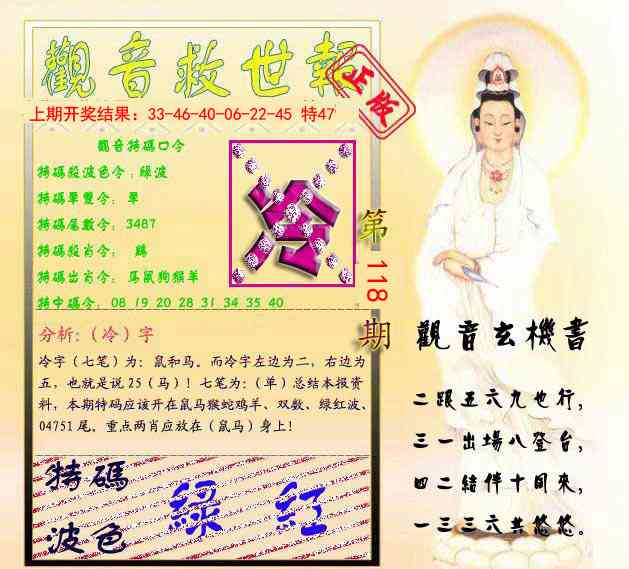 觀音救世報
正版
上期开奖结果：33-46-40-06-22-45 特47
觀音特碼口令
特碼殺波色令：綠波
特碼單雙令： 單
特碼尾數令： 3487
特碼殺肖令： 鷄
特碼出肖令： 馬鼠狗猴羊
特中碼令： 08 19 20 28 31 34 35 40
冷
第118期
分析:（冷）字
冷字（七笔）为: 鼠和马。而冷字左边为二, 右边为
五, 也就是说 25（马）! 七笔为:（单）总结本报资
料, 本期特码应该开在鼠马猴蛇鸡羊、双数、绿红波、
04751 尾。重点两肖应放在（鼠马）身上!
特碼
波色
綠 紅
觀音玄機書
二跟五六九也行,
三一出場八登台,
四二結伴十同來,
一三三六共悠悠。